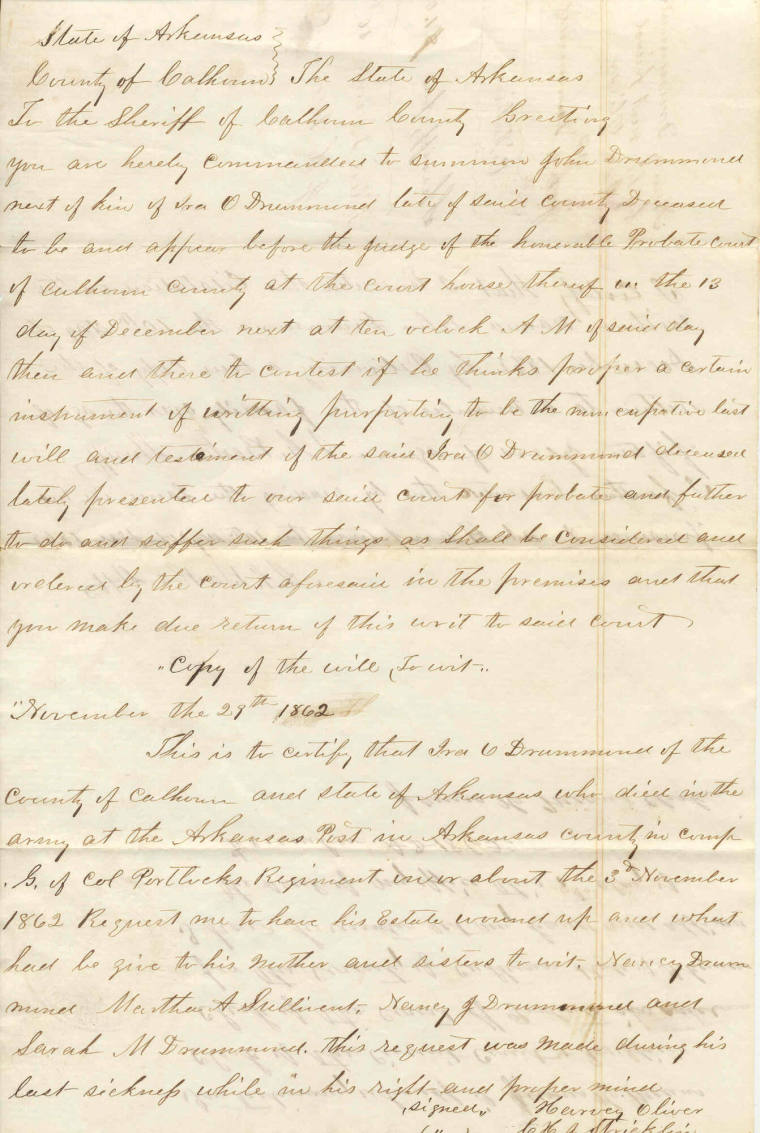 State of Arkansas
County of Calhoun The State of Arkansas
To the Sheriff of Calhoun County Greeting
you are hereby commanded to summon John Drummond
next of kin of Ira O Drummond late of said county Deceased
to be and appear before the judge of the honerable Probate court
of calhoun county at the court house thereof on the 13
day of December next at ten oclock A M of said day
then and there to contest if he thinks proper a certain
instrument of writting purporting to be the nuncupative last
will and testament of the said Ira O Drummond deceased
lately presented to our said court for probate and futher
to do and suffer such things as Shall be considered and
ordered by the court aforesaid in the premises and that
you make due return of this writ to said court
"Copy of the will, To wit"
"November the 29th 1862
This is to certify that Ira O Drummond of the
county of Calhoun and state of Arkansas who died in the
army at the Arkansas Post in Arkansas county in comp
G. of Col Portlocks Regiment on or about the 3d November
1862 Request me to have his Estate wound up and what
had be give to his mother and sisters to wit. Nancy Drum
mond Martha A Sullivent, Nancy J Drummond and
Sarah M Drummond. this request was made during his
last sickness while in his right and proper mind
signed, Harvey Oliver
(") Stricklin